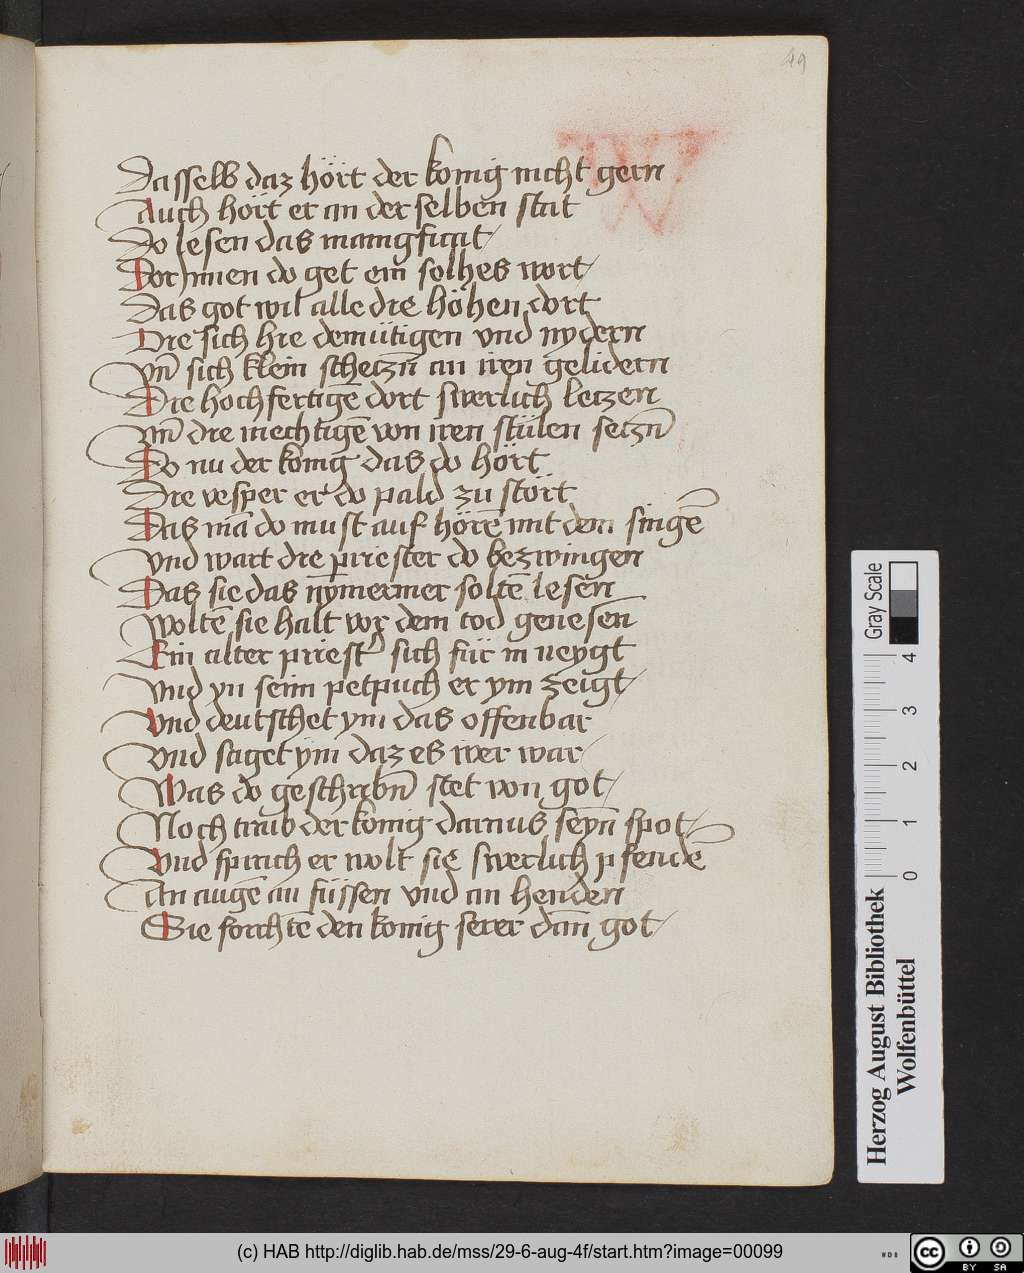 49
Dasselb daz hört der konig nicht gern
Auch hört er an der selben stat
Do lesen das mangificat
Dor Innen do get ein solhes wort
Das got wil alle die höhen dort
Die sich hie demütigen vnd nydern
Vn̄ sich klein schetzn̄ an iren gelidern
Die hochfertigē dort swerlich letzen
Vnd die mechtigē von iren stülen setzn̄
Do nu der konig das do hört
Die vesper er do pald zu stört
Das mā do must auf hörē mit dem singē
Vnd wart die priester do bezwingen
Das sie das nymermer soltē lesen
Woltē sie halt vor dem tod genesen
Ein alter priestꝰ sich für in neygt
Vnd yn seim petpuch er ym zeigt
Vnd deutschet ym das offenbar
Vnd saget ym daz es wer war
Was do geschribn̄ stet von got
Noch traib der konig daraus seyn spot
Vnd sprach er wolt sie swerlich pfendē
An augē an füssen vnd an henden
Sie forchtē den konig serer dan̄ got
Herzog August Bibliothek
Wolfenbüttel
Gray Scale
0 1 2 3 4
(c) HAB http://diglib.hab.de/mss/29-6-aug-4f/start.htm?image=00099
cc BY SA